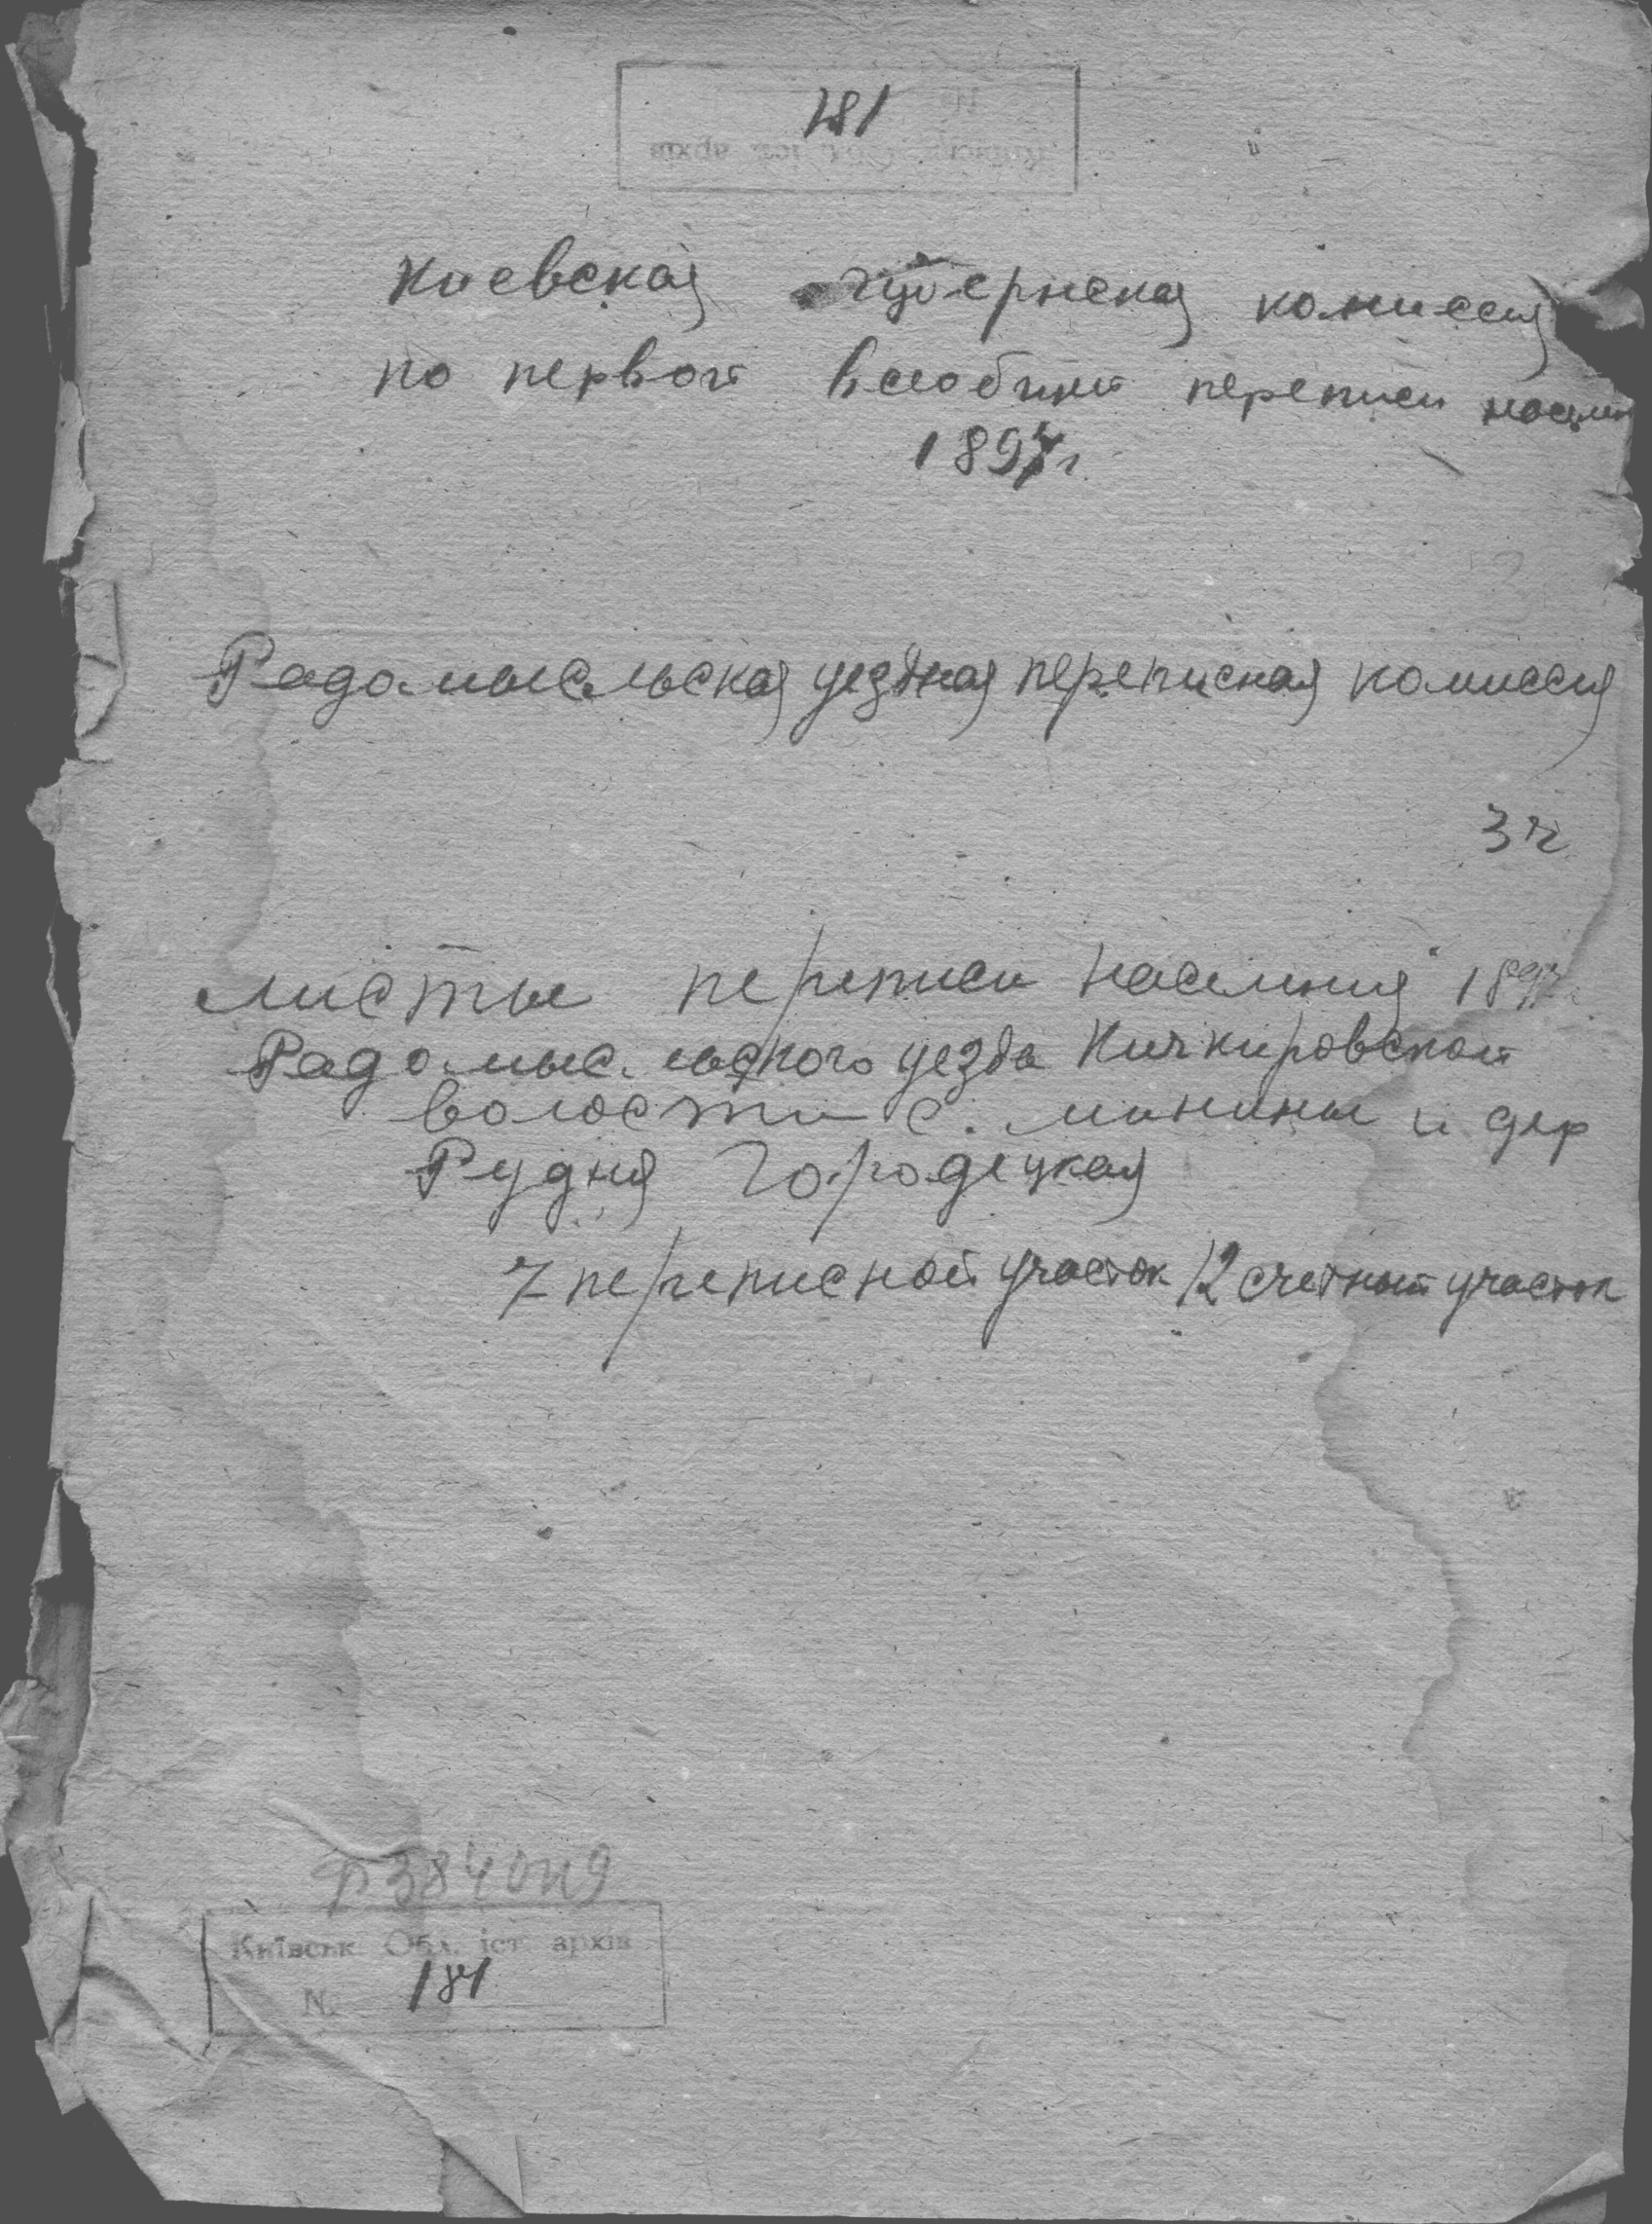 181
Киевская губернская комиссия
по первой всеобщей переписи населен
1897г.
Радомысльская уездная переписная комиссия
Листы переписи населения 1897
Радомысльского уезда Кичкировской
волости с. Минины и дер
Рудня Городецкая
7 переписной участок 12 счетный участок
Ф 384 оп 9
Київськ. Обл. іст. архів
№ 181